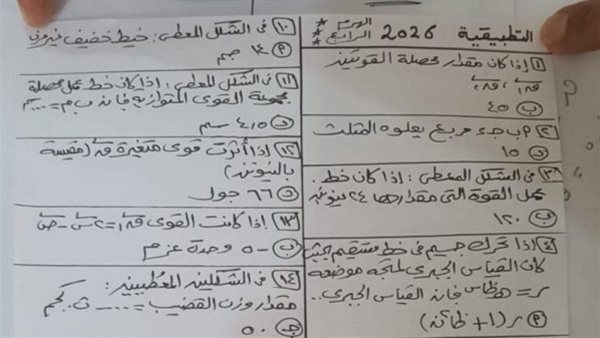 التطبيقية 2026
النموذج الرابع
١) إذا كان مقدار محصلة القوتين
ق١، ق٢
ب) ٤٥
٢) ٩ ب جـ ء مربع يعلوه المثلث
د) ١٥
٣) في الشكل المعطى: إذا كان خط
عمل القوة التي مقدارها ٢٤ نيوتن
ب) ١٢٠
٤) إذا تحرك جسيم في خط مستقيم بحيث
كان القياس الجبري لمتجه موضعه
فإن القياس الجبري..
١٠) في الشكل المعطى: خيط خفيف
٩) ١٤ جم
١١) في الشكل المعطى: إذا كان خط عمل محصلة
مجموعة القوى المتوازية فإن ب م = ... سم
د) ٤,٥ سم
١٢) إذا أثرت قوى متغيرة (مقيسة
بالنيوتن)
د) ٦٦ جول
١٣) إذا كانت القوى ق١ = ٢ س - ص
ب) - ٥ وحدة عزم
١٤) في الشكلين المعطيين:
مقدار وزن القضيب = .... ث. كجم
جـ) ٥٠